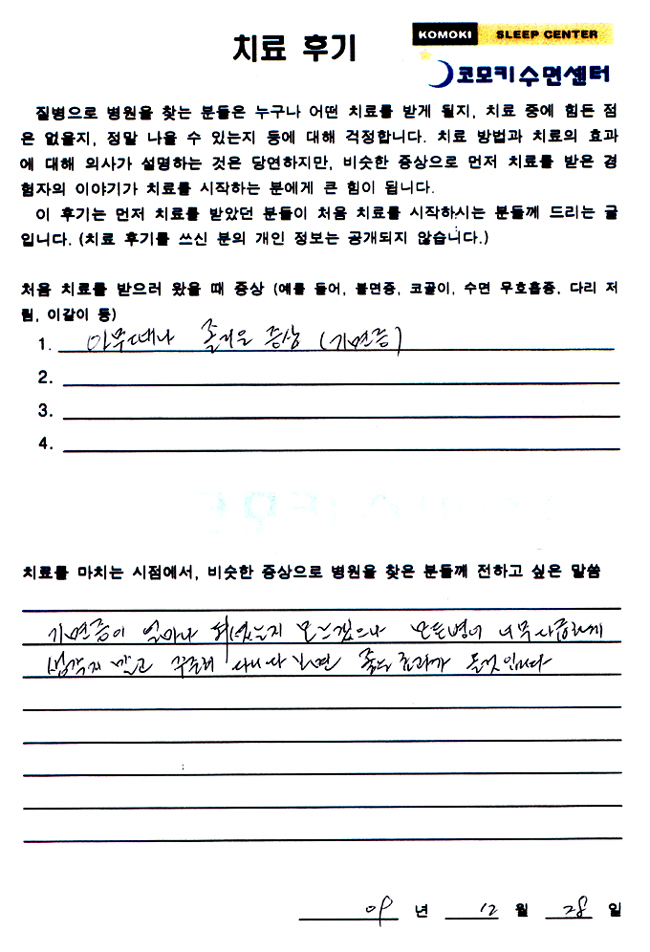 치료 후기
KOMOKI SLEEP CENTER
코모키수면센터
질병으로 병원을 찾는 분들은 누구나 어떤 치료를 받게 될지, 치료 중에 힘든 점
은 없을지, 정말 나을 수 있는지 등에 대해 걱정합니다. 치료 방법과 치료의 효과
에 대해 의사가 설명하는 것은 당연하지만, 비슷한 증상으로 먼저 치료를 받은 경
험자의 이야기가 치료를 시작하는 분에게 큰 힘이 됩니다.
이 후기는 먼저 치료를 받았던 분들이 처음 치료를 시작하시는 분들께 드리는 글
입니다. (치료 후기를 쓰신 분의 개인 정보는 공개되지 않습니다.)
처음 치료를 받으러 왔을 때 증상 (예를 들어, 불면증, 코골이, 수면 무호흡증, 다리 저
림, 이갈이 등)
1. 아무때나 졸리운 증상 (기면증)
2.
3.
4.
치료를 마치는 시점에서, 비슷한 증상으로 병원을 찾은 분들께 전하고 싶은 말씀
기면증이 얼마나 되었는지 모르겠으나 모든병이 너무 사급하게
생각지 말고 꾸준히 다니다 보면 좋은 효과가 올것입니다
09 년 12 월 28 일